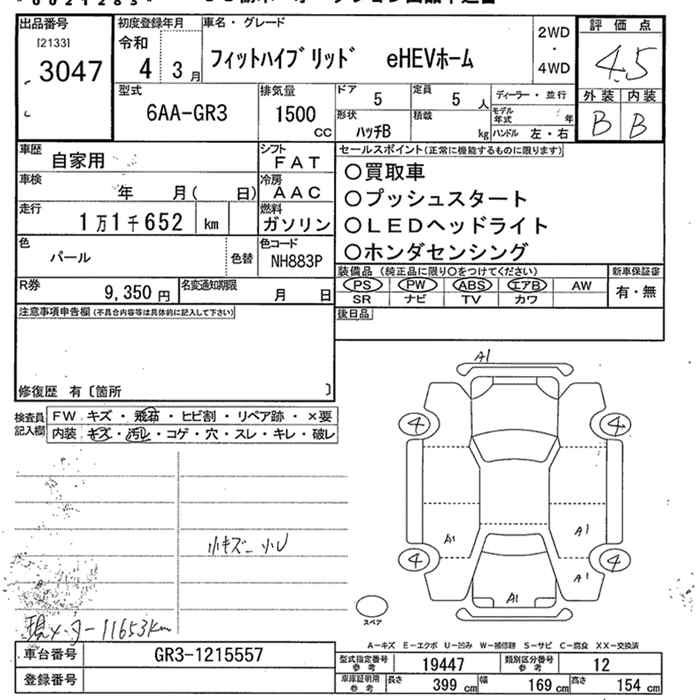 *0021283*
出品番号
[2133]
3047
初度登録年月
令和
4 3月
車名・グレード
フィットハイブリッド eHEVホーム
2WD
・
4WD
評価点
4.5
外装 内装
B B
型式
6AA-GR3
排気量
1500
cc
ドア
5
定員
5 人
形状
ハッチB
積載
kg
ディーラー・並行
モデル年式 年
ハンドル 左・右
車歴
自家用
シフト
FAT
車検
年 月( 日)
冷房
AAC
走行
1万1千652 km
燃料
ガソリン
色
パール
色替
色コード
NH883P
R券
9,350円
名変通知期限
月 日
セールスポイント(正常に機能するものに限ります)
○買取車
○プッシュスタート
○LEDヘッドライト
○ホンダセンシング
装備品(純正品に限り○をつけてください)
PS PW ABS エアB AW
SR ナビ TV カワ
新車保証書
有・無
後日品
注意事項申告欄(不具合内容等は具体的に記入して下さい)
修復歴 有〔箇所 〕
検査員記入欄
FW キズ・飛石・ヒビ割・リペア跡・×要
内装 キズ・汚れ・コゲ・穴・スレ・キレ・破レ
小キズー小U
現メーター11653km
A1
4 4
A1 A1
4 4
A1
A1
スペア
A-キズ E-エクボ U-凹み W-補修跡 S-サビ C-腐食 XX-交換済
車台番号 GR3-1215557
登録番号
型式指定番号参考 19447 類別区分番号参考 12
車庫証明用参考 長さ 399 cm 幅 169 cm 高さ 154 cm